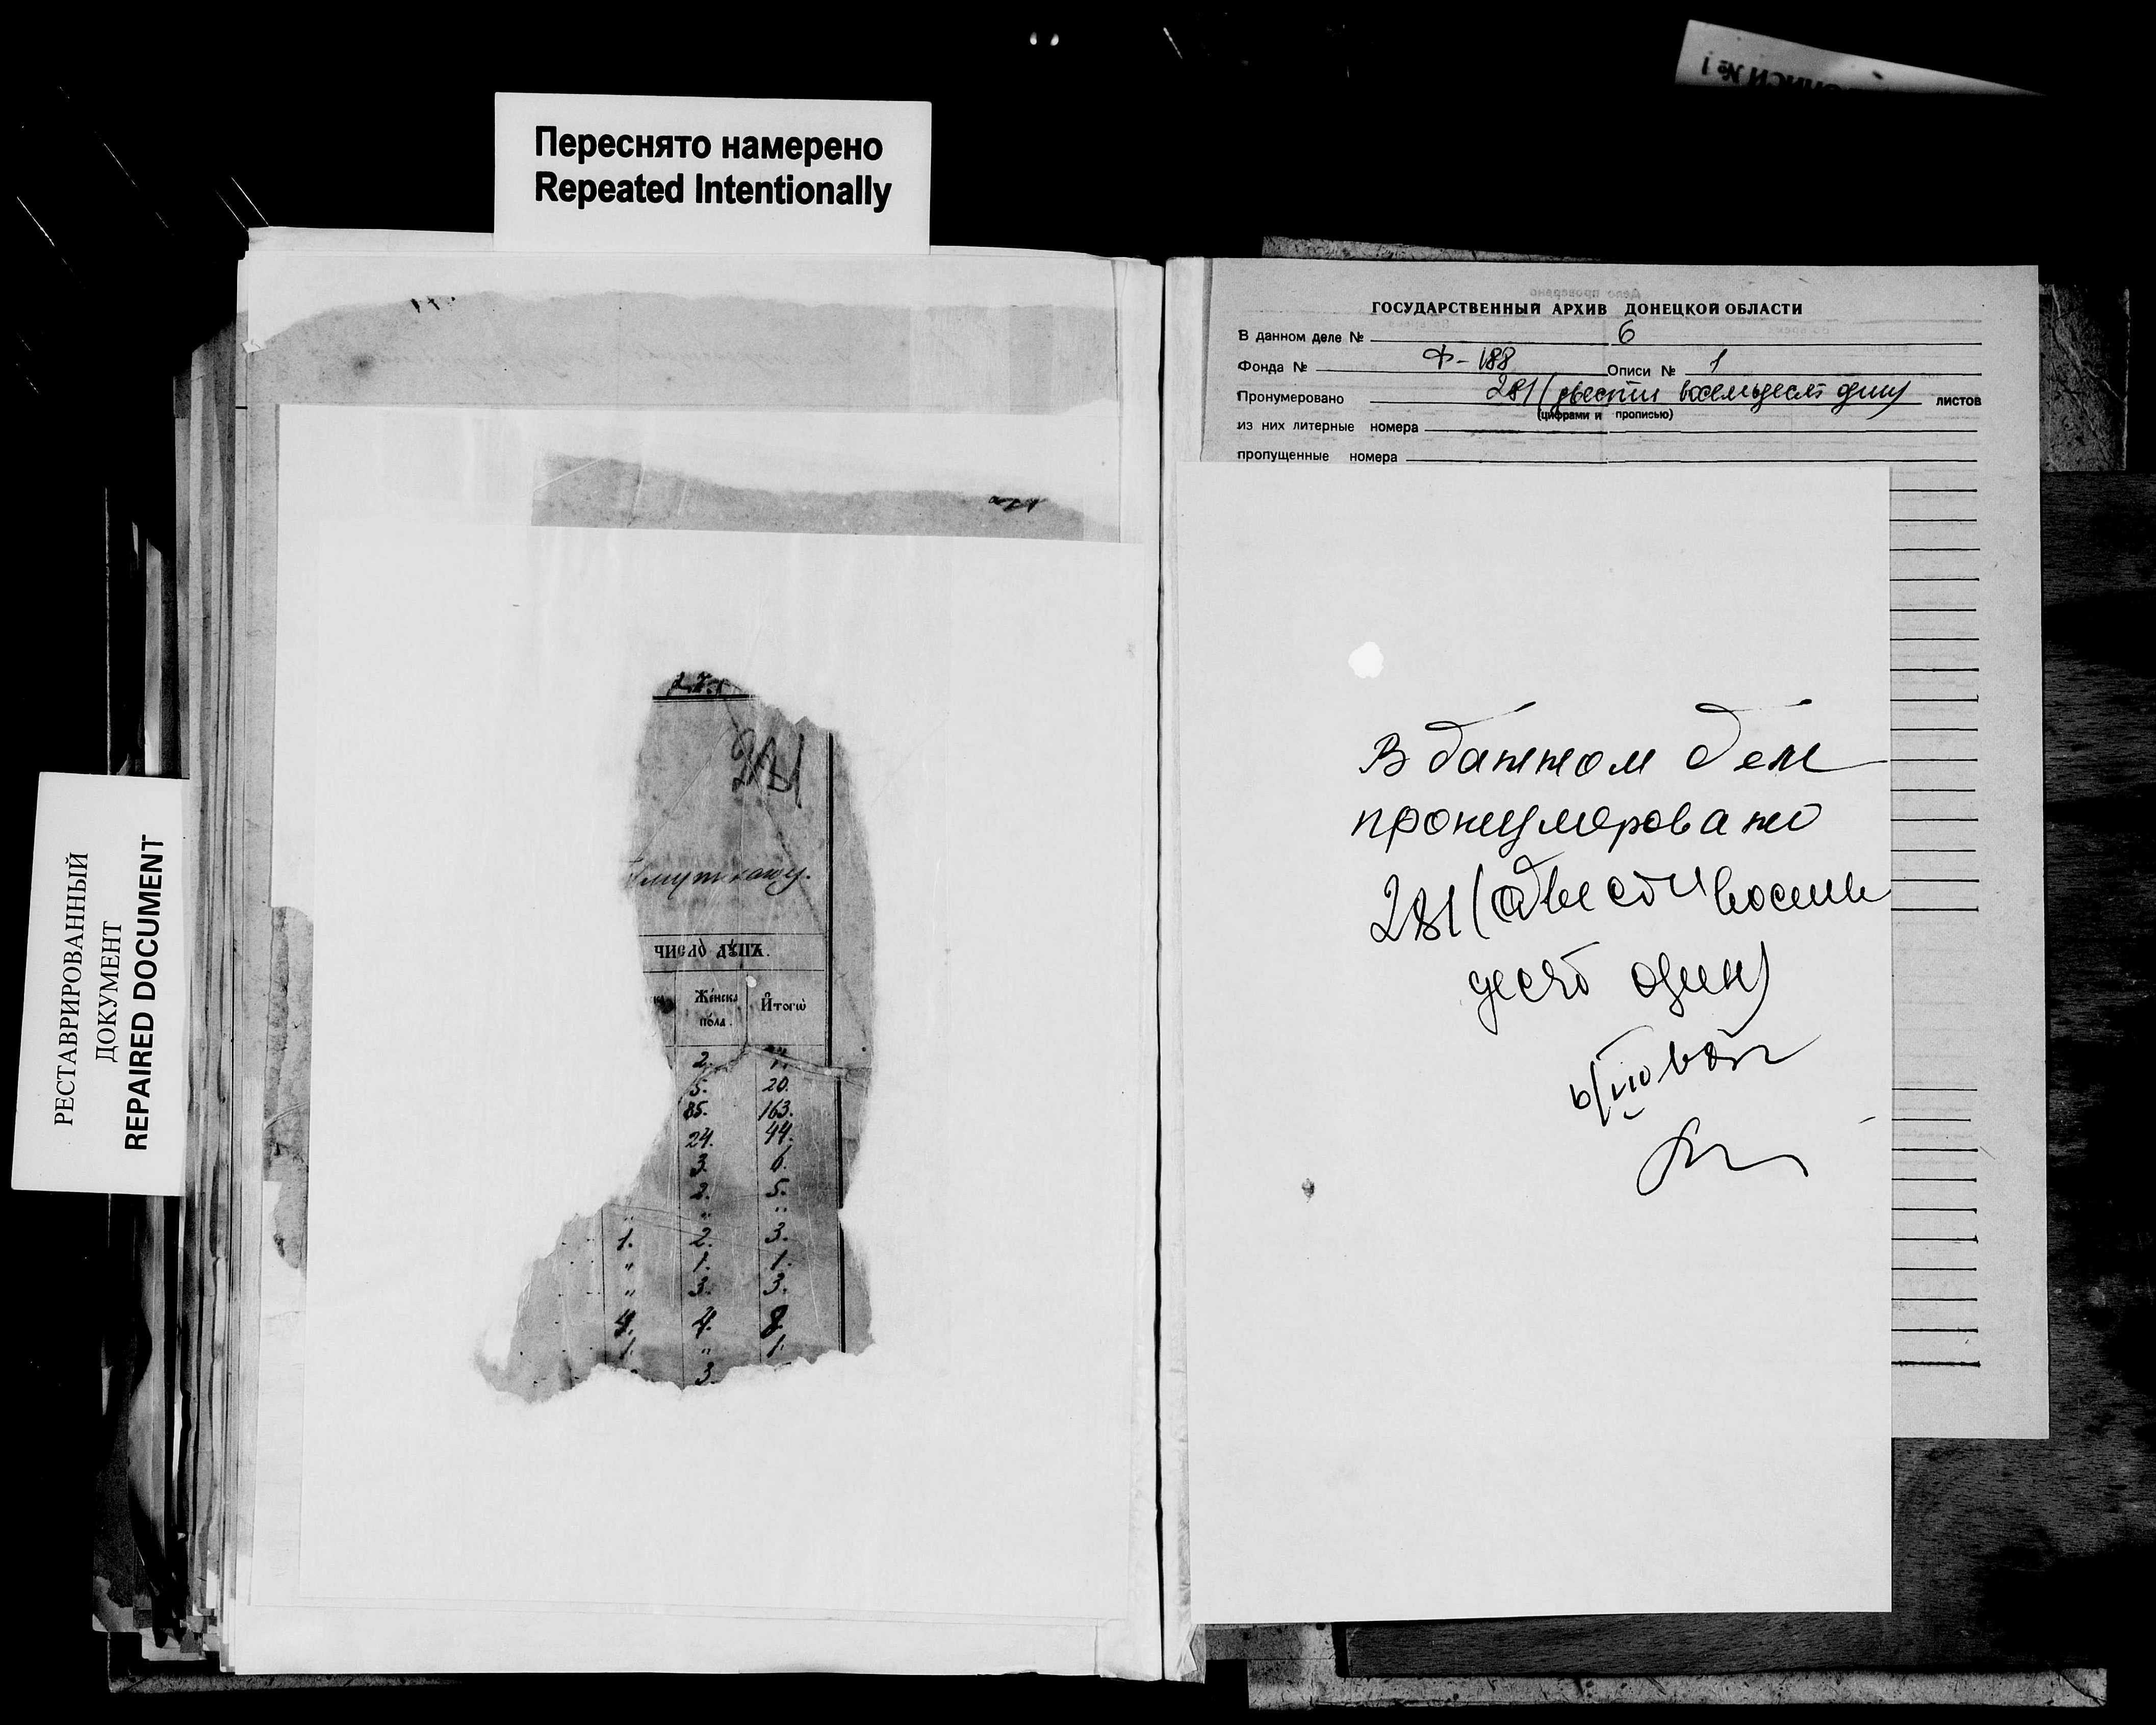 Переснято намерено
Repeated Intentionally
РЕСТАВРИРОВАННЫЙ
ДОКУМЕНТ
REPAIRED DOCUMENT
281
ЧИСЛО ДꙊШЪ.
Же́нска
по́ла.
И҆тогѡ
2.
5. 20.
85. 163.
24. 44.
3. 6.
2. 5.
" "
1. 2. 3.
" 1. 1.
" 3. 3.
4. 4. 8.
1. " 1.
3.
ГОСУДАРСТВЕННЫЙ АРХИВ ДОНЕЦКОЙ ОБЛАСТИ
В данном деле № 6
Фонда № Ф-188 Описи № 1
Пронумеровано 281 (двести восемьдесят один) листов
(цифрами и прописью)
из них литерные номера
пропущенные номера
В данном деле
пронумеровано
281 (двести восемь
десят один)
описи № 1